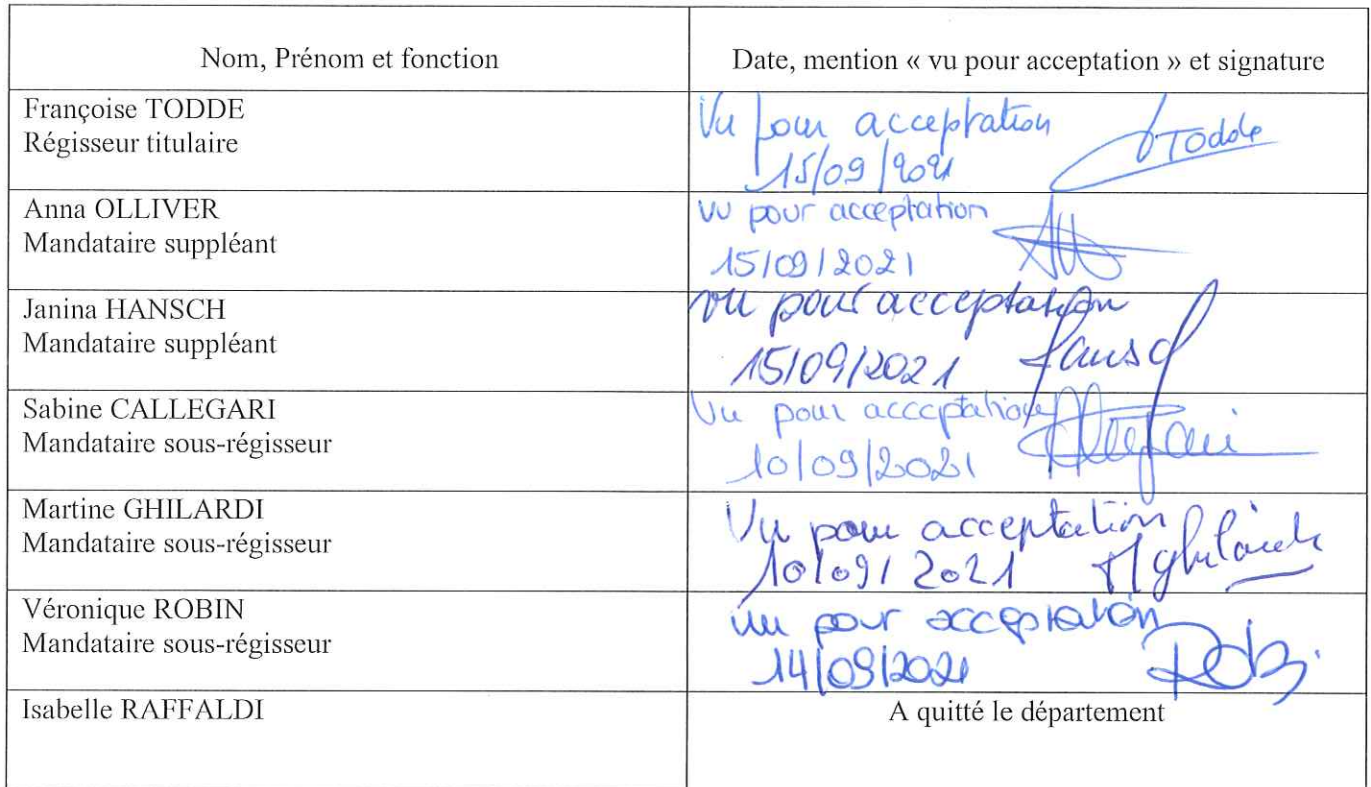 Nom, Prénom et fonction
Date, mention « vu pour acceptation » et signature
Françoise TODDE
Régisseur titulaire
Vu pour acceptation
15/09/2021
Todde
Anna OLLIVER
Mandataire suppléant
Vu pour acceptation
15/09/2021
Janina HANSCH
Mandataire suppléant
Vu pour acceptation
15/09/2021
Sabine CALLEGARI
Mandataire sous-régisseur
Vu pour acceptation
10/09/2021
Martine GHILARDI
Mandataire sous-régisseur
Vu pour acceptation
10/09/2021
Véronique ROBIN
Mandataire sous-régisseur
Vu pour acceptation
14/09/2021
Isabelle RAFFALDI
A quitté le département